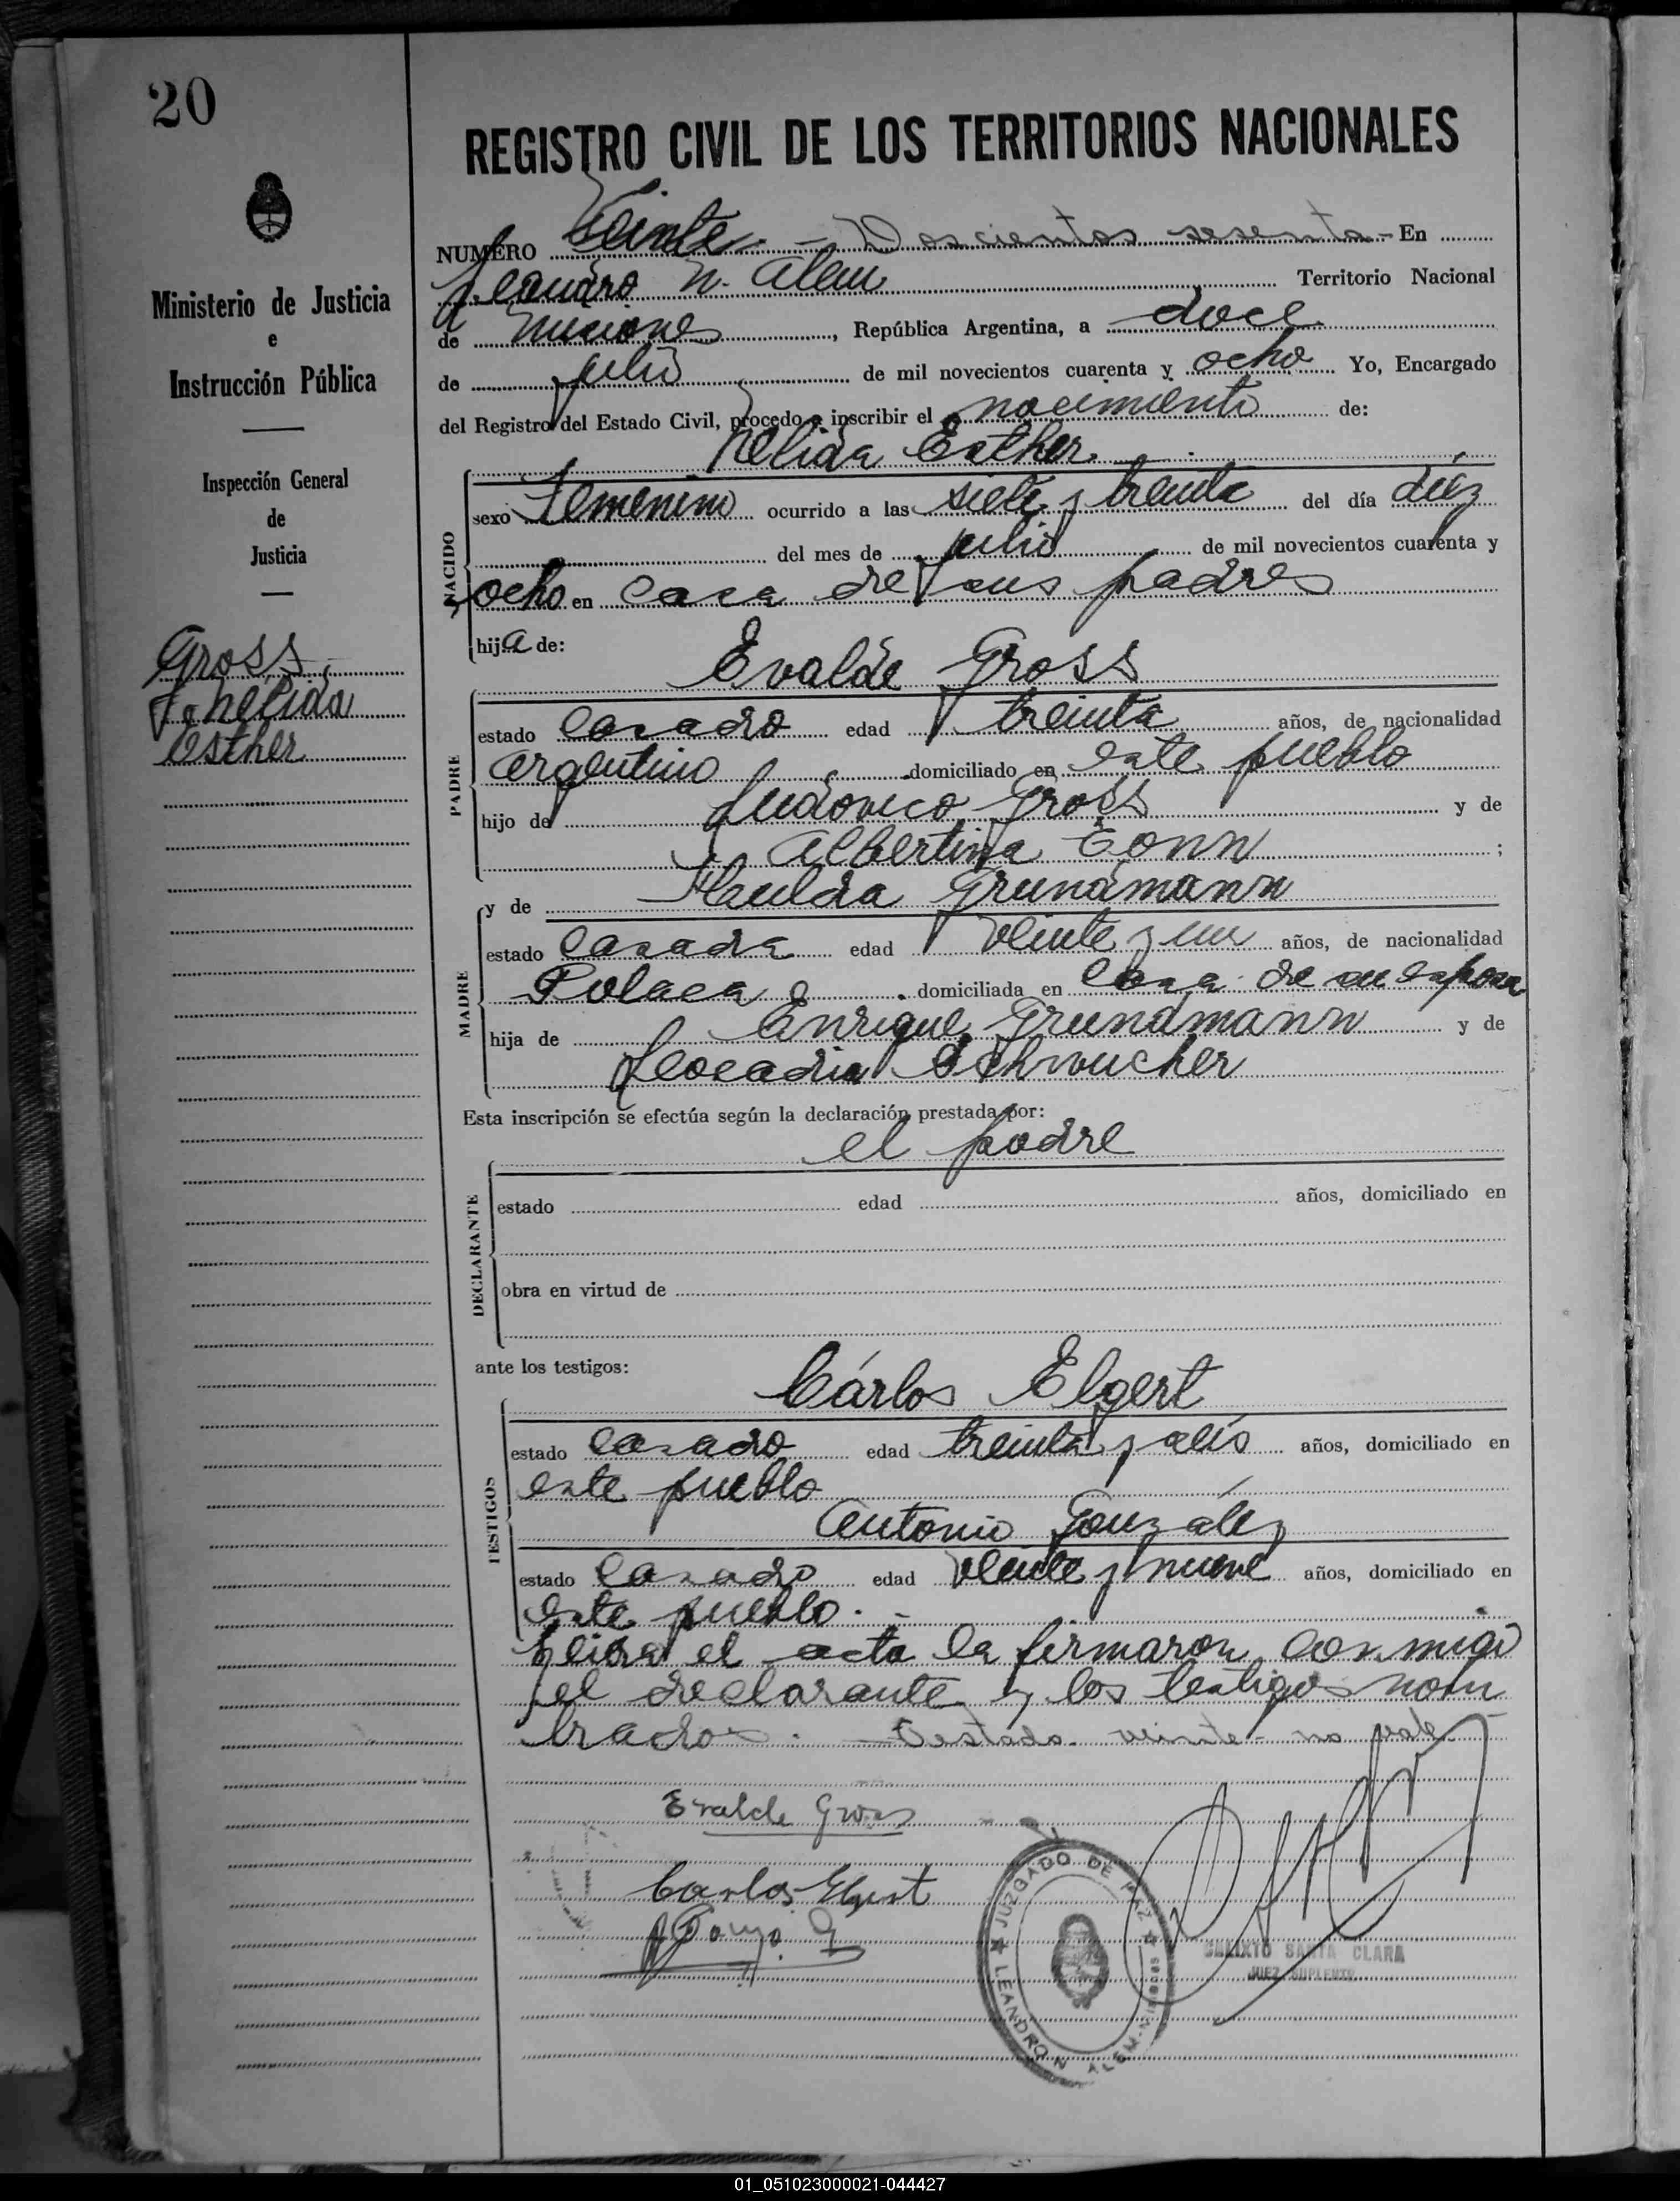 20
REGISTRO CIVIL DE LOS TERRITORIOS NACIONALES
Ministerio de Justicia
e
Instrucción Pública
Inspección General
de
Justicia
Gross
Nelida
Esther
NUMERO Veinte. - Doscientos sesenta - En
Leandro N. Alem Territorio Nacional
de Misiones, República Argentina, a doce
de julio de mil novecientos cuarenta y ocho Yo, Encargado
del Registro del Estado Civil, procedo a inscribir el nacimiento de:
Nelida Esther.
NACIDO
sexo Femenino ocurrido a las siete y treinta del día diez
del mes de julio de mil novecientos cuarenta y
ocho en casa de sus padres
hija de:
Evalde Gross
PADRE
estado casado edad treinta años, de nacionalidad
argentino domiciliado en este pueblo
hijo de Ludovico Gross y de
Albertina Tonn ;
y de Hulda Grundmann
MADRE
estado casada edad veinte y un años, de nacionalidad
Polaca domiciliada en casa de su esposo
hija de Enrique Grundmann y de
Leocadia Schroucher
Esta inscripción se efectúa según la declaración prestada por:
el padre
DECLARANTE
estado edad años, domiciliado en
obra en virtud de
ante los testigos:
Cárlos Elgert
TESTIGOS
estado casado edad treinta y seis años, domiciliado en
este pueblo
Antonio González
estado casado edad veinte y nueve años, domiciliado en
este pueblo. -
Leida el acta la firmaron conmigo
el declarante y los testigos nom
brados. - Testado - veinte - no vale
Evalde Gross
Carlos Elgert
JUZGADO DE PAZ
LEANDRO N. ALEM - MISIONES
CALIXTO SANTA CLARA
JUEZ SUPLENTE
01_051023000021-044427